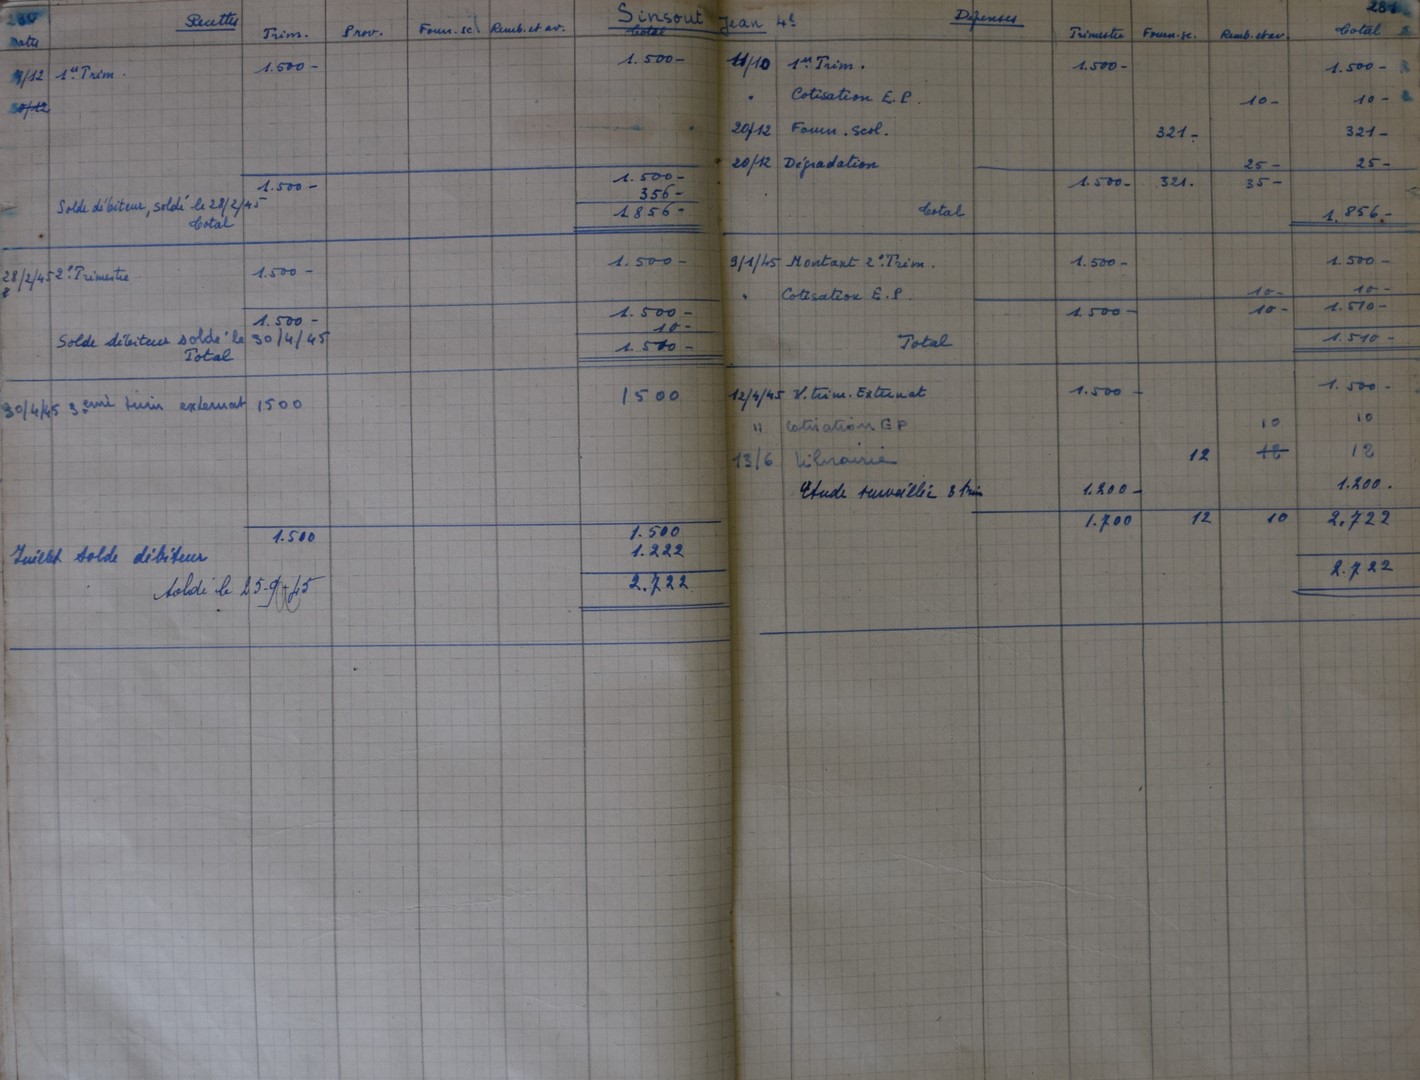 280 Recettes Sinsout Jean 4e Dépenses 281
Dates Trim. Prov. Fourn. sc. Remb. et av. Total Trimestre Fourn. sc. Remb. et av. Total
9/12 1er Trim. 1.500- 1.500-
30/12
1.500- 1.500-
Solde débiteur, soldé le 28/2/45 356-
Total 1856-
28/2/45 2e Trimestre 1.500- 1.500-
1.500- 1.500-
Solde débiteur soldé le 30/4/45 10-
Total 1.510-
30/4/45 3eme trim externat 1500 1500
1.500 1.500
Juillet Solde débiteur 1.222
Soldé le 25-9-45 2.722
11/10 1er Trim. 1.500- 1.500-
" Cotisation E.P. 10- 10-
20/12 Fourn. scol. 321- 321-
20/12 Dégradation 25- 25-
1.500- 321. 35-
Total 1.856.-
9/1/45 Montant 2e Trim. 1.500- 1.500-
" Cotisation E.P. 10- 10-
1.500- 10- 1.510-
Total 1.510-
12/4/45 V. trim. Externat 1.500- 1.500-
" Cotisation EP 10 10
13/6 Librairie 12 12 12
Etude surveillée 3 trim 1.200- 1.200.
1.700 12 10 2.722
2.722